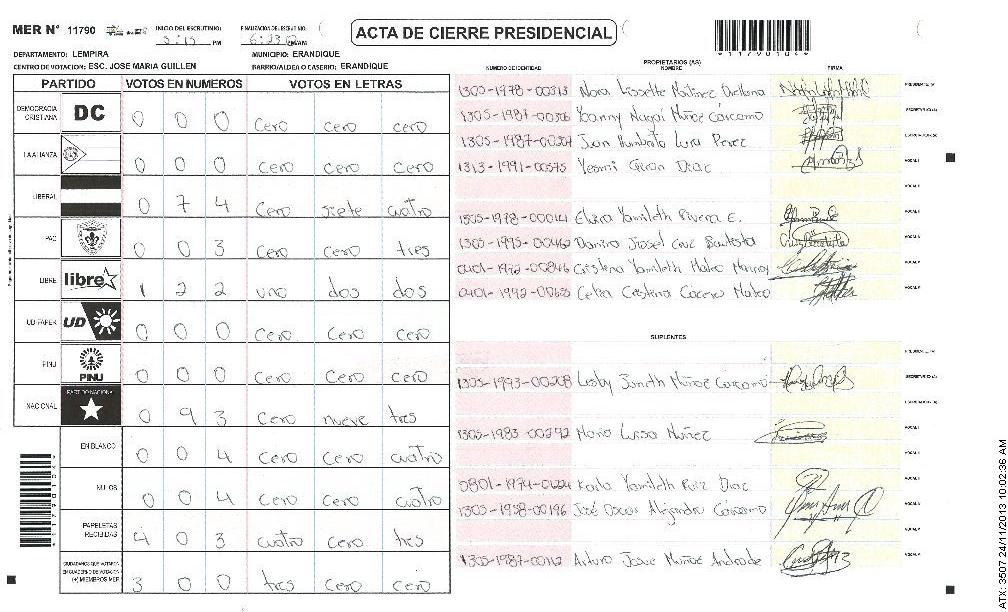 MER N° 11790 INICIO DEL ESCRUTINIO: FINALIZACION DEL ESCRUTINIO: ACTA DE CIERRE PRESIDENCIAL
5:15 PM
DEPARTAMENTO: LEMPIRA MUNICIPIO: ERANDIQUE
CENTRO DE VOTACION: ESC. JOSE MARIA GUILLEN BARRIO/ALDEA O CASERIO: ERANDIQUE
PARTIDO VOTOS EN NUMEROS VOTOS EN LETRAS
DEMOCRACIA CRISTIANA DC 0 0 0 cero cero cero
LA ALIANZA 0 0 0 cero cero cero
LIBERAL 0 7 4 cero siete cuatro
PAC 0 0 3 cero cero tres
LIBRE libre 1 2 2 uno dos dos
UD-FAPER UD 0 0 0 cero cero cero
PINU PINU 0 0 0 cero cero cero
NACIONAL PARTIDO NACIONAL 0 9 3 cero nueve tres
EN BLANCO 0 0 4 cero cero cuatro
NULOS 0 0 4 cero cero cuatro
PAPELETAS RECIBIDAS 4 0 3 cuatro cero tres
CIUDADANOS QUE VOTARON EN CUADERNO DE VOTACION (+) MIEMBROS MER 3 0 0 tres cero cero
PROPIETARIOS (AS)
NUMERO DE IDENTIDAD NOMBRE FIRMA
1305-1978-00313 Nora Lissette Martinez Orellana
1305-1987-00306 Yoanny Nugai Muñoz Carcamo
1305-1987-00307 Juan Humberto Lara Perez
1313-1991-00575 Yesmi Diaz
1305-1978-00014 Elvira Yamileth Rivera E.
1305-1995-00462 Danira Jossel Cruz Bautista
0401-1972-00846 Cristina Yamileth Mateo
0401-1992-00635 Celea Cristina Mateo
SUPLENTES
1305-1993-00208 Lesby Janeth Muñoz Carcamo
1305-1983-00292 Maria Luisa Nuñez
0801-1974-01224 Karla Yamileth Ruiz Diaz
1305-1958-00196 José Oscar Alejandro Carcamo
1305-1987-00112 Arturo Josue Muñoz Andrade
ATX: 3507 24/11/2013 10:02:36 AM